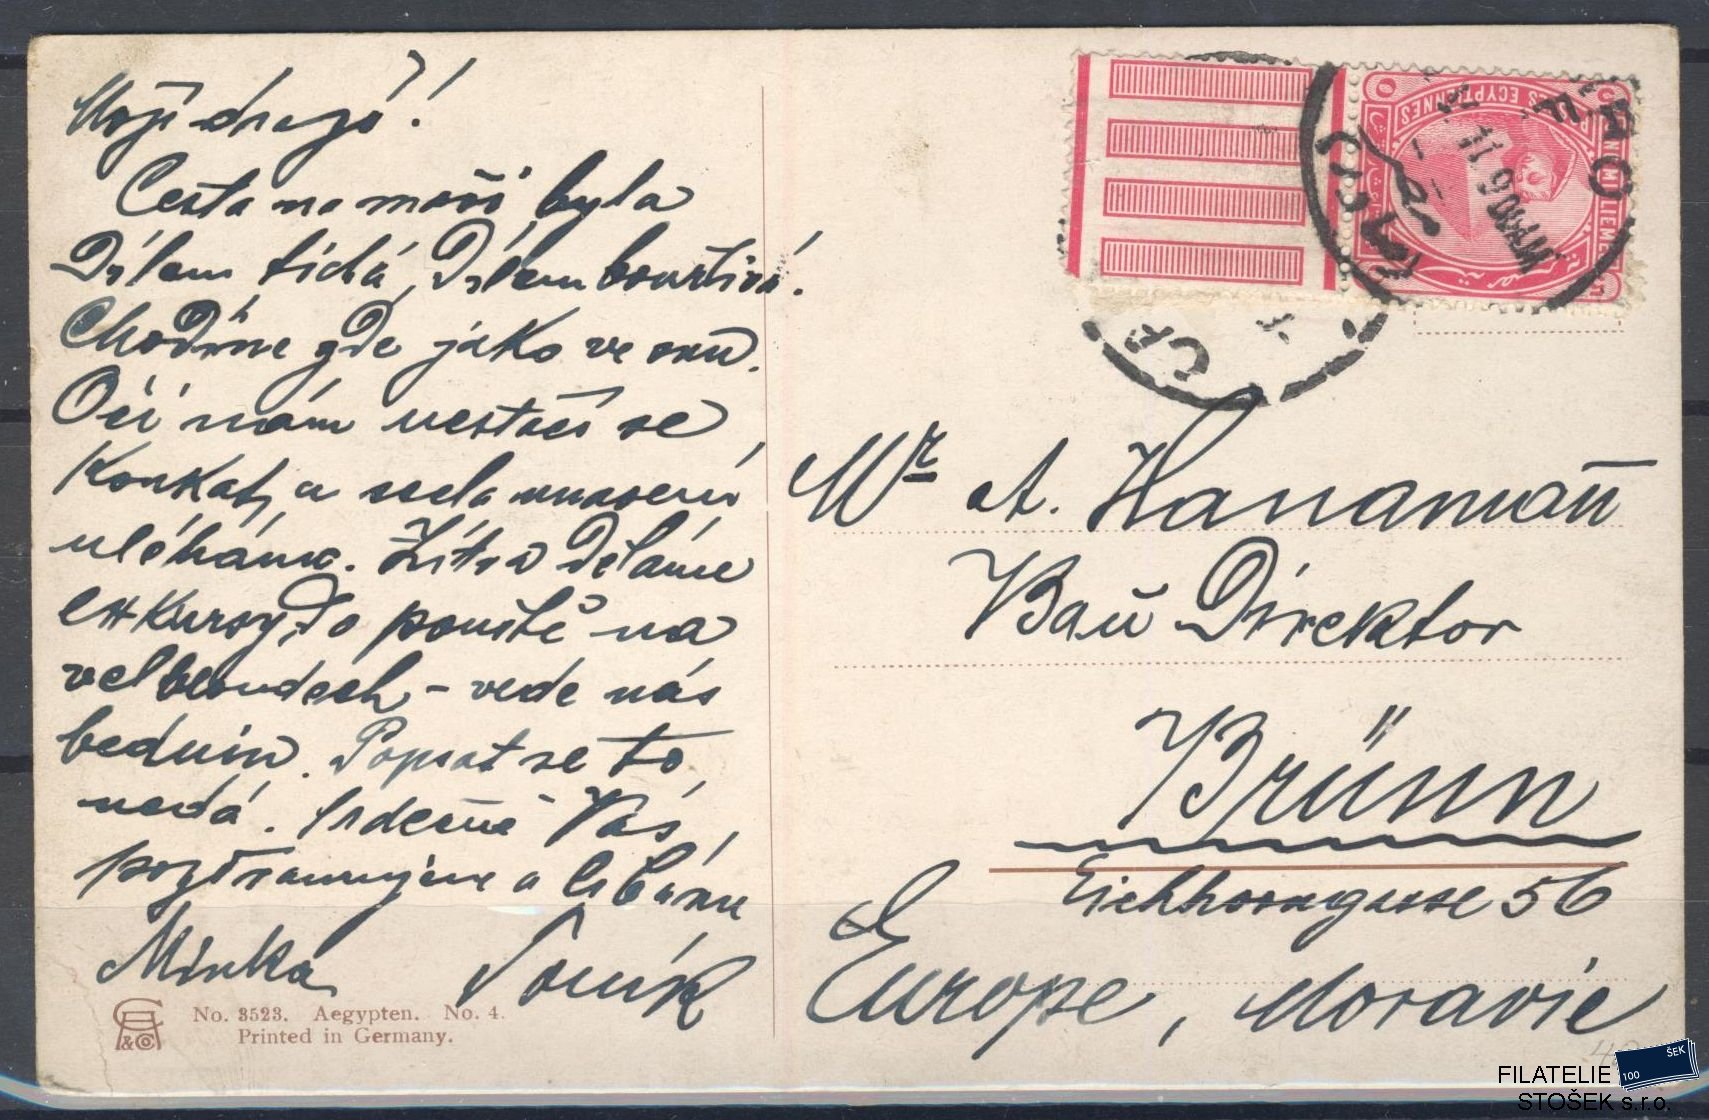 Moji drazí!
Cesta na moři byla
Dílem tichá, Dílem bouřlivá!
Chodíme zde jako ve snu.
Oči nám nestačí se
Koukat, a zcela unaveni
uléháme. Zítra Děláme
exkursy Do pouště na
velbloudech - vede nás
beduin. Popsat se to
nedá. Srdečně Vás
pozdravujeme a líbáme
Minka Toník
No. 3523. Aegypten. No. 4.
Printed in Germany.
& Co
POSTES EGYPTIENNES
CINQ MILLIEMES
CAIRO
Mr A. Hanamann
Bau Direktor
Brünn
Eichhorngasse 56
Europe, Moravie
FILATELIE
STOŠEK s.r.o.
100
ŠEK